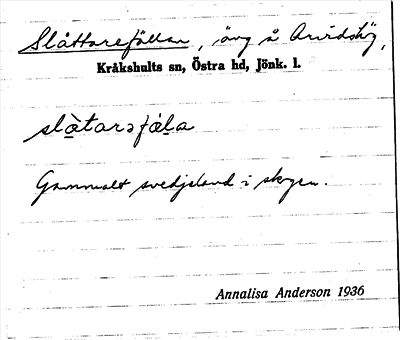 Slåttarefällan, äng å Arvidshöj,
Kråkshults sn, Östra hd, Jönk. l.
slàtarəfála
Gammalt svedjeland i skogen.
Annalisa Anderson 1936